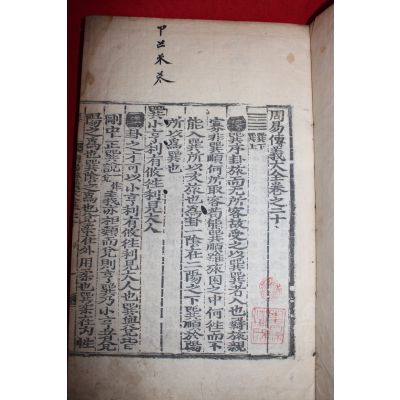 周易傳義大全卷之二十
巽下
巽上
巽序卦旅而无所容故受之以巽巽者入也羈旅親
寡非巽順何所取容苟能巽順雖旅困之中何往而不
能入巽所以次旅也爲卦一陰在二陽之下巽順於陽
所以爲巽也
巽小亨利有攸往利見大人
卦之才可以小亨利有攸往利見大人也巽與兌皆
剛中正巽說義亦相類而兌則亨巽乃小亨者兌
陽之爲也巽陰之爲也兌柔在外用柔也巽柔在內性